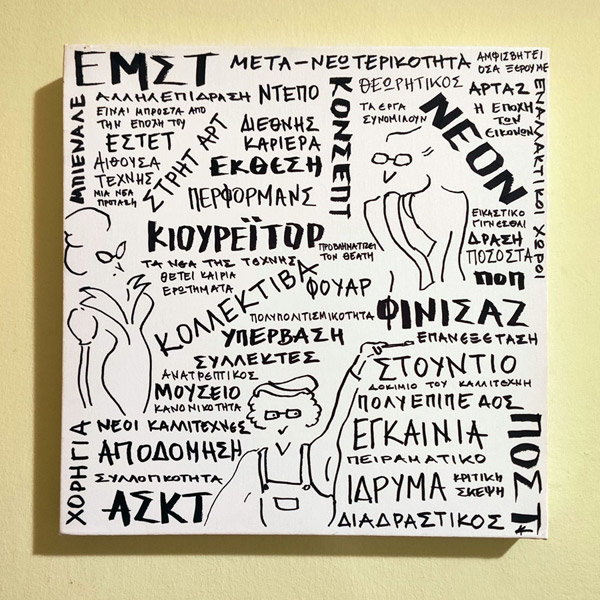 ΕΜΣΤ
ΜΕΤΑ-ΝΕΩΤΕΡΙΚΟΤΗΤΑ
ΑΜΦΙΣΒΗΤΕΙ
ΟΣΑ ΞΕΡΟΥΜΕ
ΜΠΙΕΝΑΛΕ
ΑΛΛΗΛΕΠΙΔΡΑΣΗ
ΝΤΕΠΟ
ΚΟΝΣΕΠΤ
ΘΕΩΡΗΤΙΚΟΣ
ΑΡΤΑΖ
ΕΝΑΛΛΑΚΤΙΚΟΙ ΧΩΡΟΙ
ΕΙΝΑΙ ΜΠΡΟΣΤΑ ΑΠΟ
ΤΗΝ ΕΠΟΧΗ ΤΟΥ
ΕΣΤΕΤ
ΣΤΡΗΤ ΑΡΤ
ΔΙΕΘΝΗΣ
ΚΑΡΙΕΡΑ
ΤΑ ΕΡΓΑ
ΣΥΝΟΜΙΛΟΥΝ
ΝΕΟΝ
Η ΕΠΟΧΗ
ΤΩΝ
ΕΙΚΟΝΩΝ
ΑΙΘΟΥΣΑ
ΤΕΧΝΗΣ
ΜΙΑ ΝΕΑ
ΠΡΟΤΑΣΗ
ΕΚΘΕΣΗ
ΠΕΡΦΟΡΜΑΝΣ
ΚΙΟΥΡΕΪΤΟΡ
ΕΙΚΑΣΤΙΚΟ
ΓΙΓΝΕΣΘΑΙ
ΔΡΑΣΗ
ΠΟΖΟΣΤΑ
ΠΟΠ
ΤΑ ΝΕΑ ΤΗΣ ΤΕΧΝΗΣ
ΠΡΟΒΛΗΜΑΤΙΖΕΙ
ΤΟΝ ΘΕΑΤΗ
ΘΕΤΕΙ ΚΑΙΡΙΑ
ΕΡΩΤΗΜΑΤΑ
ΚΟΛΛΕΚΤΙΒΑ
ΦΟΥΑΡ
ΠΟΛΥΠΟΛΙΤΙΣΜΙΚΟΤΗΤΑ
ΦΙΝΙΣΑΖ
ΥΠΕΡΒΑΣΗ
ΕΠΑΝΕΞΕΤΑΣΗ
ΣΥΛΛΕΚΤΕΣ
ΣΤΟΥΝΤΙΟ
ΑΝΑΤΡΕΠΤΙΚΟΣ
ΔΟΚΙΜΙΟ ΤΟΥ ΚΑΛΛΙΤΕΧΝΗ
ΜΟΥΣΕΙΟ
ΚΑΝΟΝΙΚΟΤΗΤΑ
ΠΟΛΥΕΠΙΠΕΔΟΣ
ΧΟΡΗΓΙΑ
ΝΕΟΙ ΚΑΛΛΙΤΕΧΝΕΣ
ΕΓΚΑΙΝΙΑ
ΠΟΣΤ
ΑΠΟΔΟΜΗΣΗ
ΠΕΙΡΑΜΑΤΙΚΟ
ΣΥΛΛΟΓΙΚΟΤΗΤΑ
ΙΔΡΥΜΑ
ΚΡΙΤΙΚΗ
ΣΚΕΨΗ
ΑΣΚΤ
ΔΙΑΔΡΑΣΤΙΚΟΣ